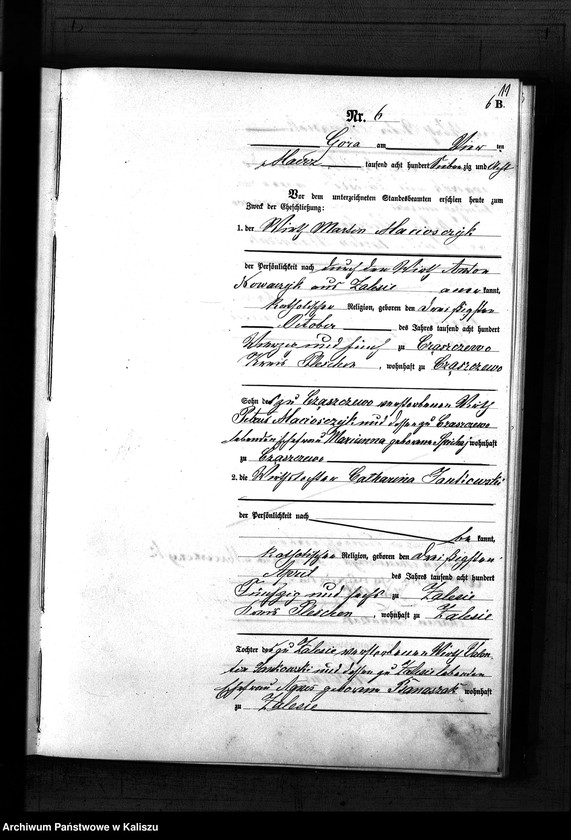 11
6 B.
Nr. 6
Gora am Vier ten
Maerz tausend acht hundert Sieben zig und Acht
Vor dem unterzeichneten Standesbeamten erschien heute zum
Zweck der Eheschließung:
1. der Wirth Martin Maciosczyk
der Persönlichkeit nach durch den Wirth Anton
Kowaczyk aus Zalesie aner kannt,
katholischer Religion, geboren den dreißigsten
October des Jahres tausend acht hundert
Vierzig und fünf zu Czaszczewo
Kreis Pleschen, wohnhaft zu Czaszczewo
Sohn des zu Czaszczewo verstorbenen Wirth
Petrus Maciosczyk und dessen zu Czaszczewo
lebenden Ehefrau Marianna geborene wohnhaft
zu Czaszczewo
2. die Wirthstochter Catharina
der Persönlichkeit nach
be kannt,
katholischer Religion, geboren den dreißigsten
April des Jahres tausend acht hundert
Fünfzig und sechs zu Zalesie
Kreis Pleschen, wohnhaft zu Zalesie
Tochter des zu Zalesie verstorbenen Wirth Valen-
tin Jankowski und dessen zu Zalesie lebenden
Ehefrau Agnes geborene Banaszak wohnhaft
zu Zalesie
Archiwum Państwowe w Kaliszu